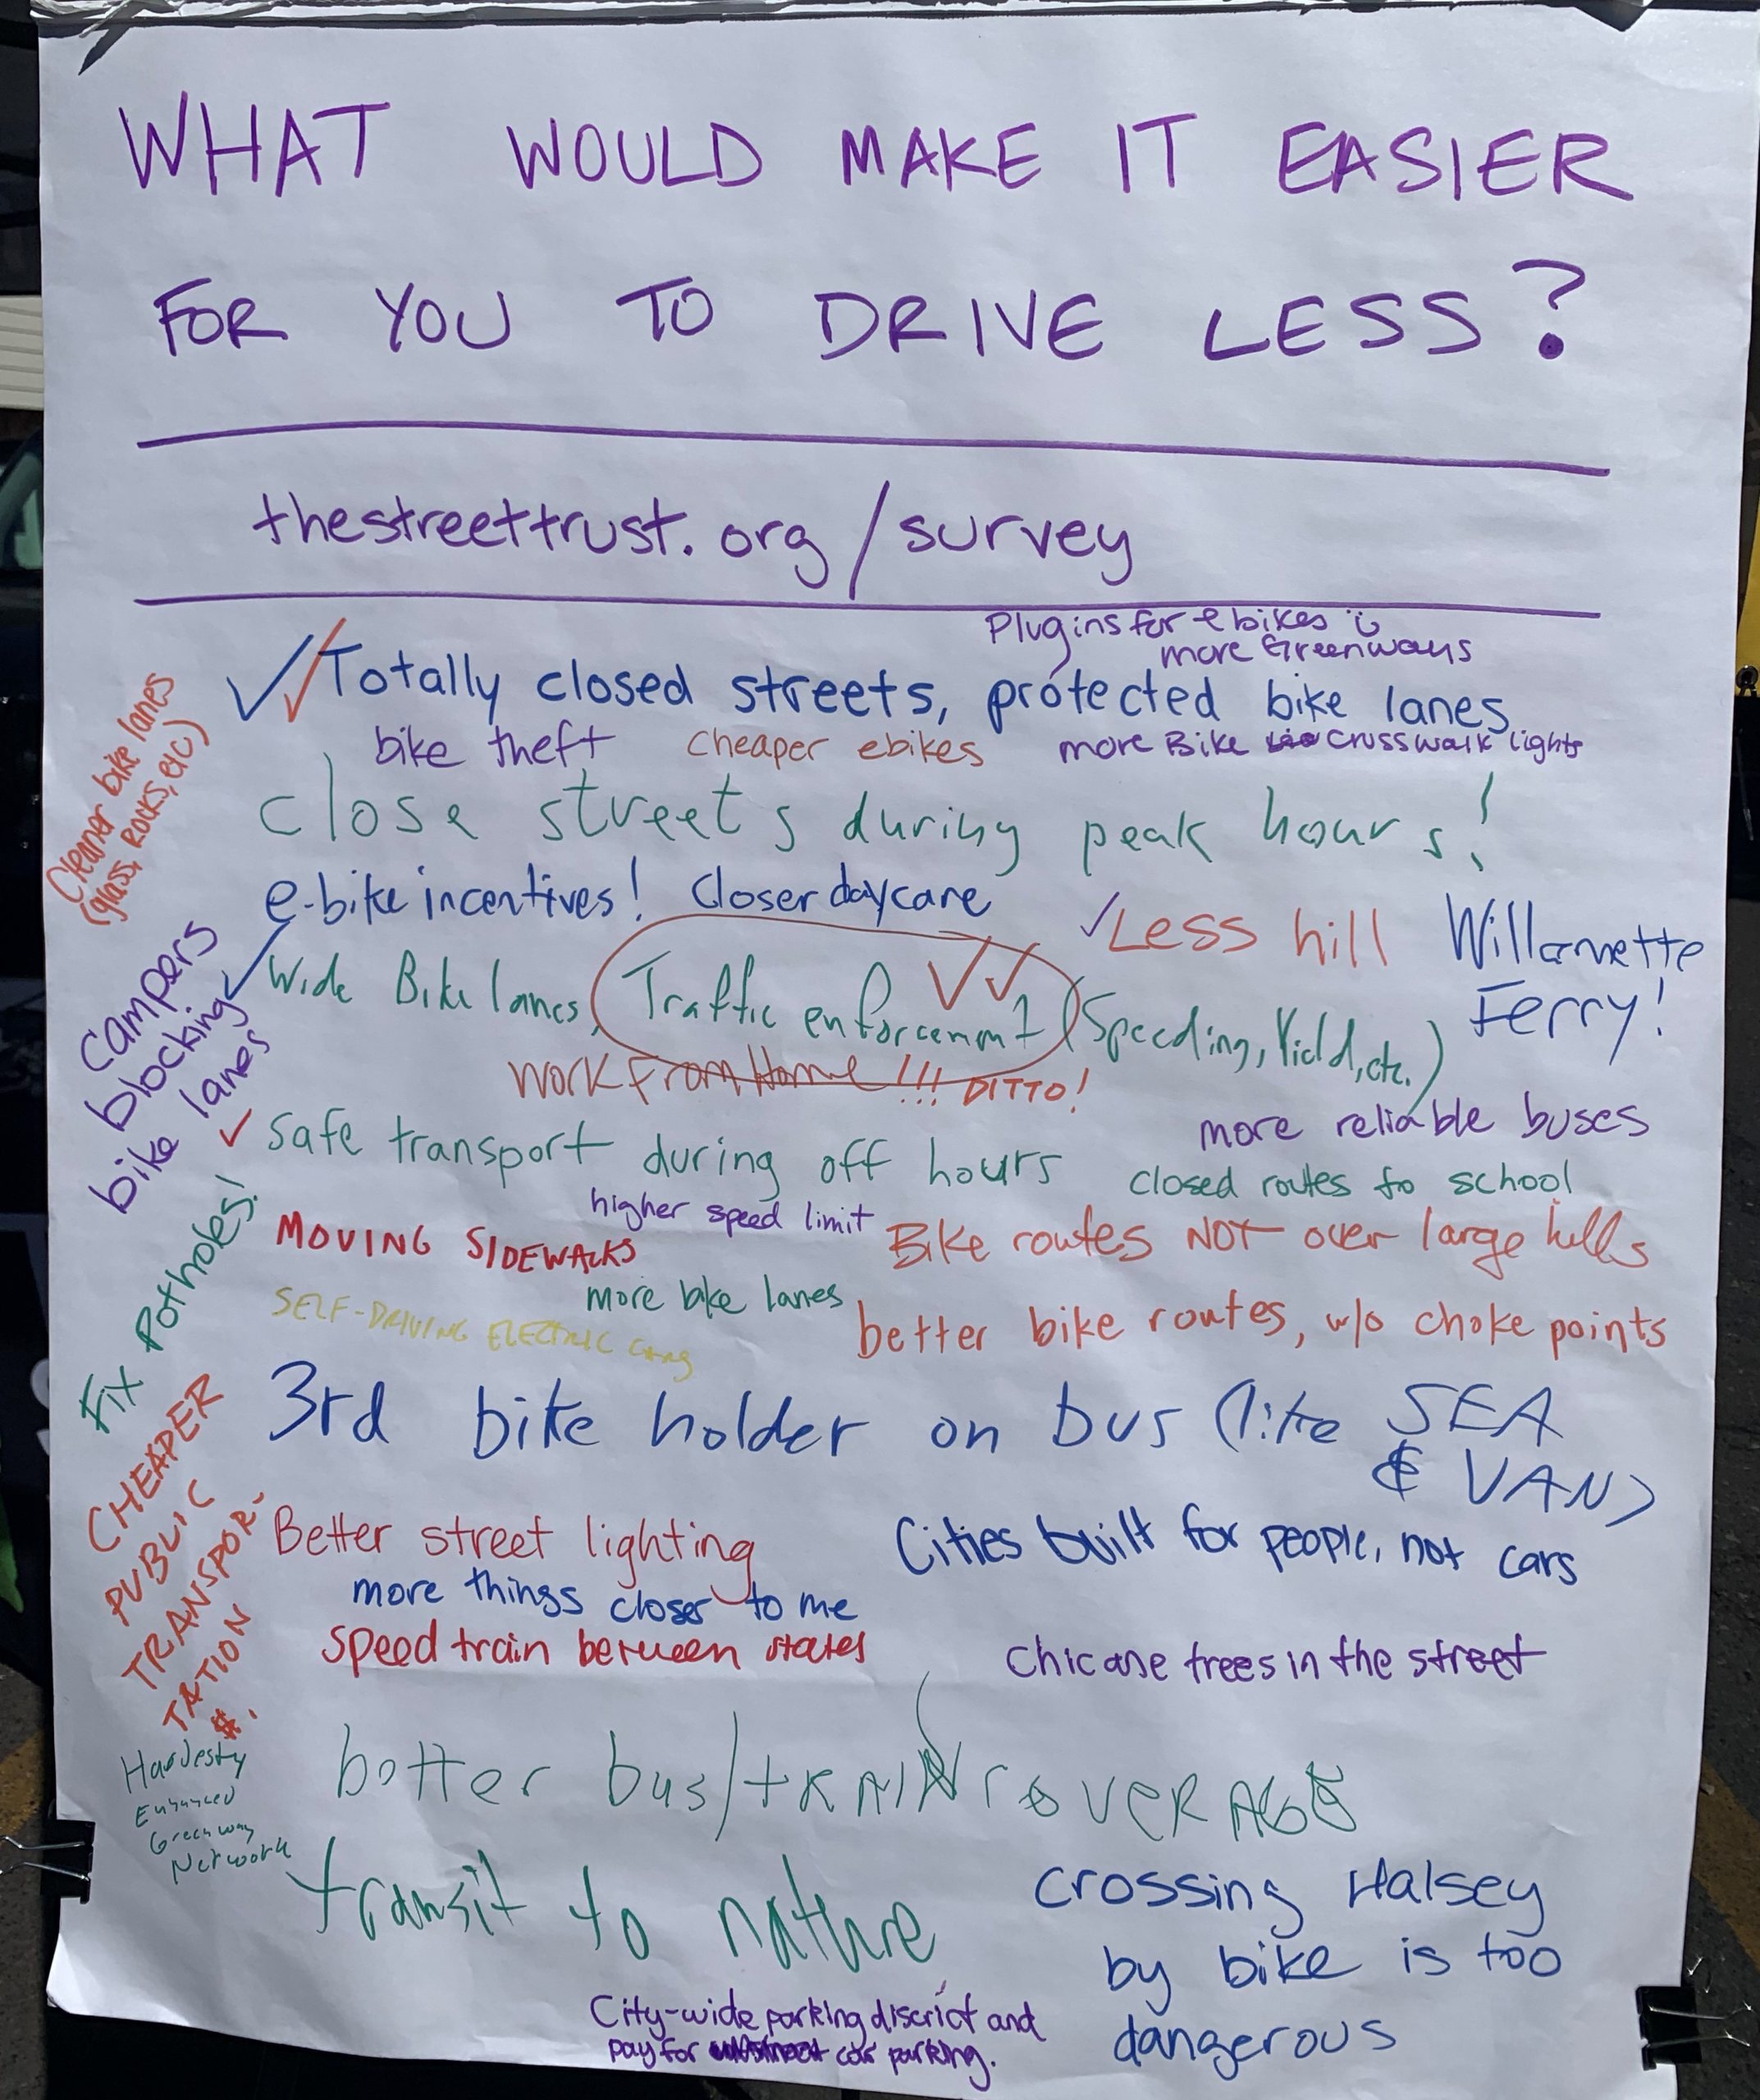 WHAT WOULD MAKE IT EASIER
FOR YOU TO DRIVE LESS?
thestreettrust.org/survey
Plugins for ebikes
more Greenways
Totally closed streets, protected bike lanes
bike theft
cheaper ebikes
more Bike crosswalk lights
close streets during peak hours!
e-bike incentives!
Closer daycare
Less hill
Willamette
Ferry!
Wide Bike lanes, Traffic enforcemnt (Speeding, Yield, etc.)
Work From Home!!! DITTO!
more reliable buses
safe transport during off hours
closed routes to school
higher speed limit
MOVING SIDEWALKS
Bike routes NOT over large hills
more bike lanes
SELF-DRIVING ELECTRIC cars
better bike routes, w/o choke points
3rd bike holder on bus (like SEA
& VAN)
Better street lighting
Cities built for people, not cars
more things closer to me
speed train between states
chicane trees in the street
better bus/tRAIN coVeRAGE
transit to nature
crossing Halsey
by bike is too
dangerous
City-wide parking district and
pay for car parking.
Cleaner bike lanes
(glass, rocks, etc)
campers
blocking
bike lanes
Fix Potholes!
CHEAPER
PUBLIC
TRANSPOR-
TATION
$.
Hardesty
Enhanced
Greenway
Network